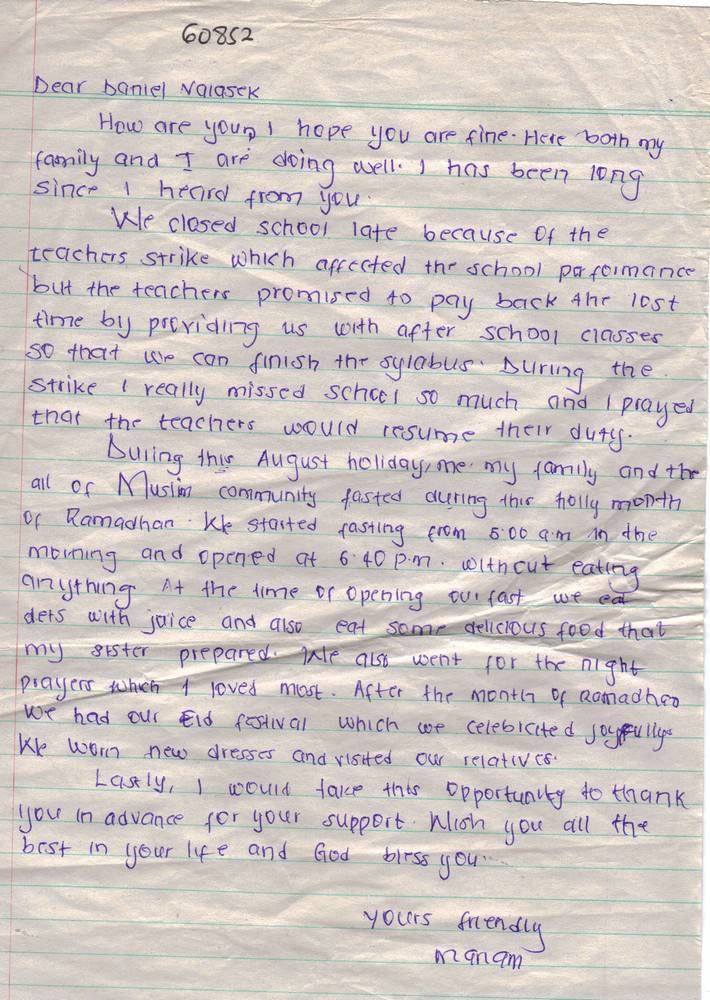 60852
Dear Daniel Valasek
How are you?, I hope you are fine. Here both my
family and I are doing well. I has been long
since I heard from you.
We closed school late because of the
teachers strike which affected the school performance
but the teachers promised to pay back the lost
time by providing us with after school classes
so that we can finish the sylabus. During the
strike I really missed school so much and I prayed
that the teachers would resume their duty.
During this August holiday, me. my family and the
all of Muslim community fasted during this holly month
of Ramadhan. We started fasting from 5:00 a.m in the
morning and opened at 6:40 p.m. without eating
anything. At the time of opening our fast we eat
dets with juice and also eat some delicious food that
my sister prepared. We also went for the night
prayers which I loved most. After the month of Ramadhan
we had our Eid festival which we celebrated joyfully.
We worn new dresses and visited our relatives.
Lastly, I would take this opportunity to thank
you in advance for your support. Wish you all the
best in your life and God bless you.
yours friendly
Mariam